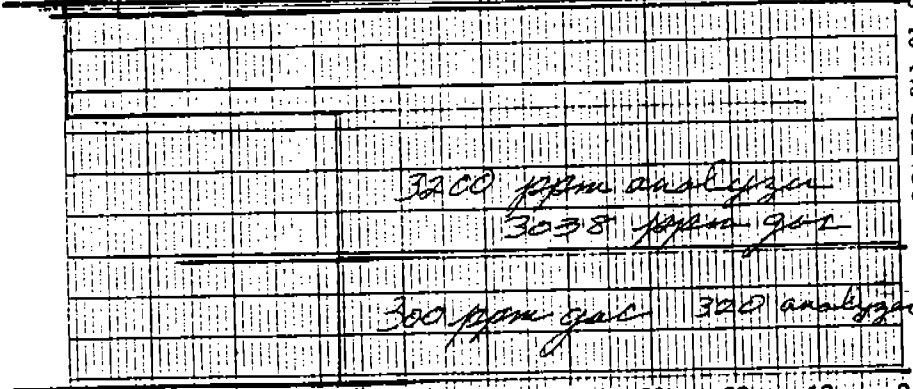 3200 ppm analyzer
3038 ppm gas
300 ppm gas 320 analyzer